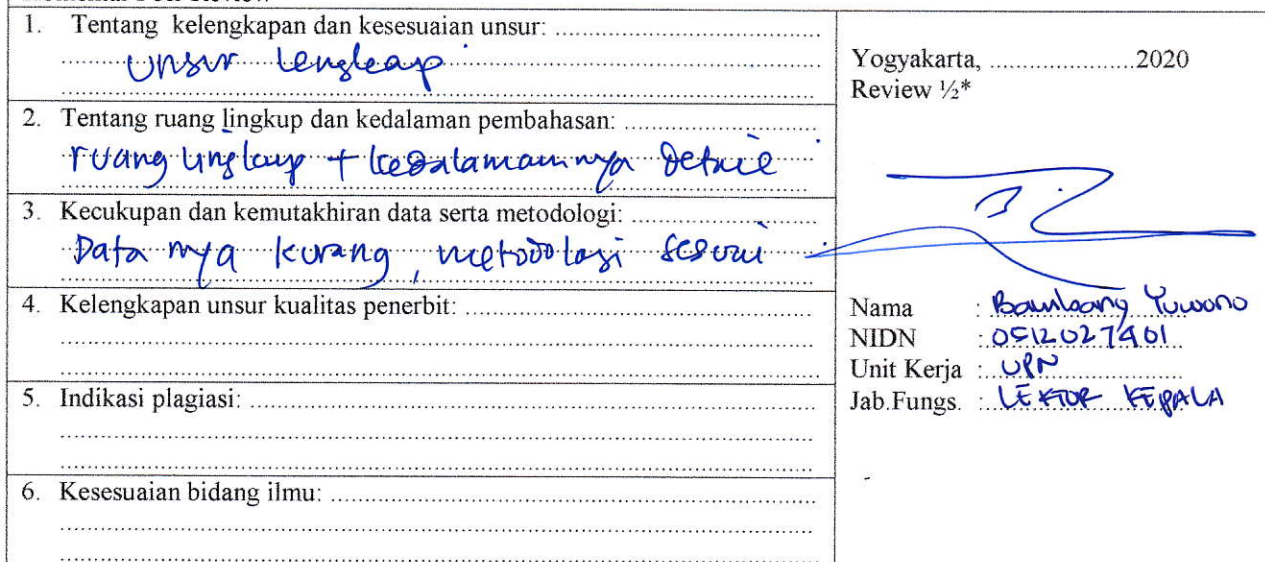 1. Tentang kelengkapan dan kesesuaian unsur: ...................................
Unsur lengkap
2. Tentang ruang lingkup dan kedalaman pembahasan: .........................
ruang lingkup + kedalamannya Detail
3. Kecukupan dan kemutakhiran data serta metodologi: ........................
Data nya kurang, metodologi sesuai
4. Kelengkapan unsur kualitas penerbit: ..............................................
5. Indikasi plagiasi: ..........................................................................
6. Kesesuaian bidang ilmu: ...............................................................
Yogyakarta, .....................2020
Review ½*
Nama : Bambang Yuwono
NIDN : 0512027401
Unit Kerja : UPN
Jab.Fungs. : LEKTOR KEPALA